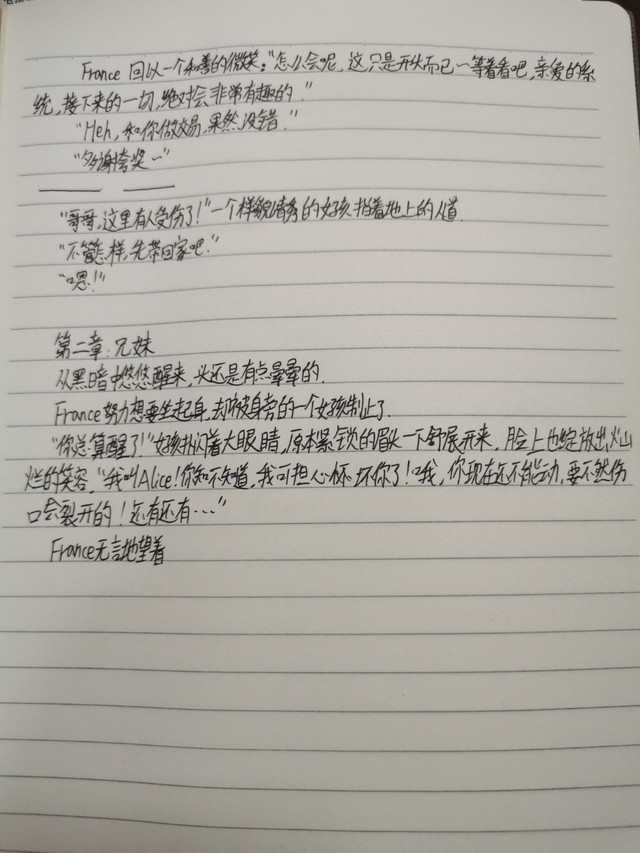 France 回以一个和善的微笑:"怎么会呢,这只是开始而已~等着看吧,亲爱的系
统,接下来的一切,绝对会非常有趣的."
"Heh,和你做交易,果然没错."
"多谢夸奖~"
"哥哥,这里有人受伤了!"一个样貌清秀的女孩指着地上的人道.
"不管怎样,先带回家吧."
"嗯!"
第二章:兄妹
从黑暗中悠悠醒来,头还是有点晕晕的.
France努力想要坐起身,却被身旁的一个女孩制止了.
"你总算醒了!"女孩扑闪着大眼睛,原本紧锁的眉头一下舒展开来,脸上也绽放出灿
烂的笑容,"我叫Alice!你知不知道,我可担心坏你了!哦,你现在还不能动,要不然伤
口会裂开的!还有还有..."
France无言地望着